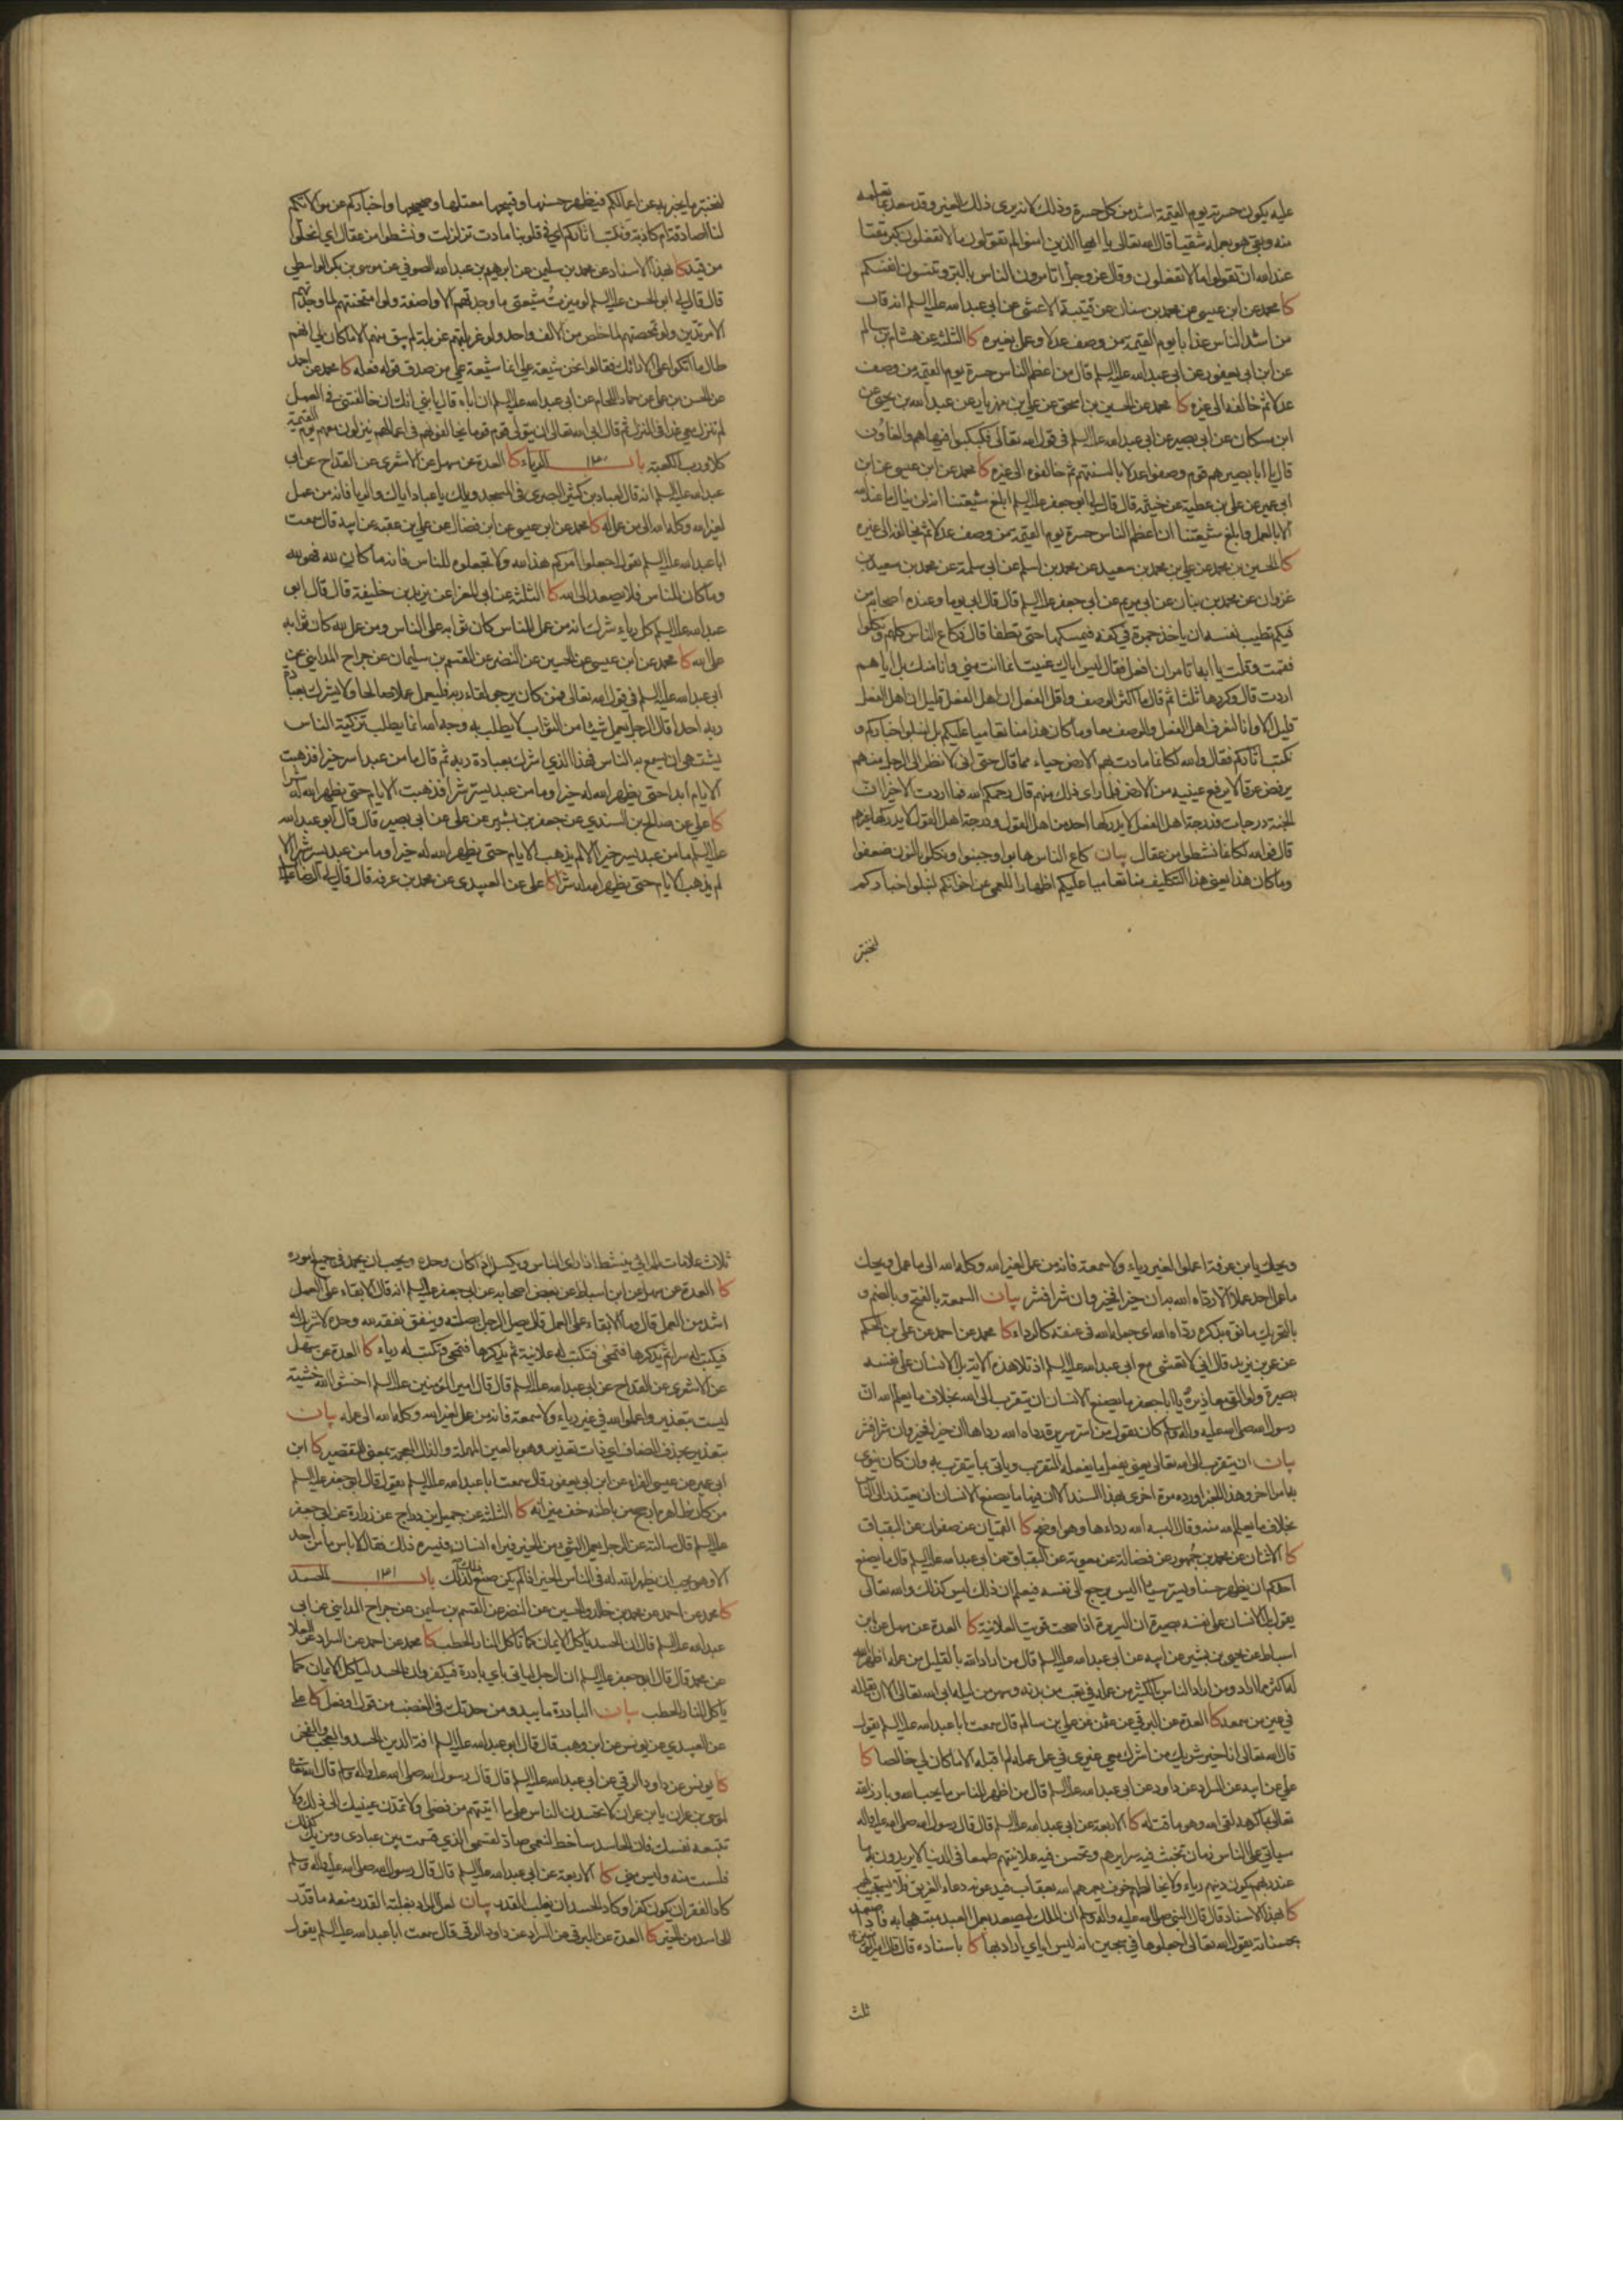 عليه يكون حسرته يوم القيمة اشد من كل حسرة وذلك لانه يرى ذلك الغير وقد سعد بما تعلمه
منه وبقي هو بعلمه شقيا قال الله تعالى يا ايها الذين امنوا لم تقولون ما لا تفعلون كبر مقتا
عند الله ان تقولوا ما لا تفعلون وقال عز وجل اتامرون الناس بالبر وتنسون انفسكم
كا محمد عن ابن عيسى عن محمد بن سنان عن قتيبة الاعشى عن ابي عبد الله عليه السلم انه قال
من اشد الناس عذابا يوم القيمة من وصف عدلا وعمل بغيره كا الثلثة عن هشام بن سالم
عن ابن ابي يعفور عن ابي عبد الله عليه السلم قال من اعظم الناس حسرة يوم القيمة من وصف
عدلا ثم خالفه الى غيره كا محمد عن الحسين بن اسحق عن علي بن مهزيار عن عبد الله بن يحيى عن
ابن مسكان عن ابي بصير عن ابي عبد الله عليه السلم في قول الله تعالى فكبكبوا فيها هم والغاوون
قال يا ابا بصير هم قوم وصفوا عدلا بالسنتهم ثم خالفوه الى غيره كا محمد عن ابن عيسى عن ابن
ابي عمير عن علي بن عطية عن خيثمة قال قال لي ابو جعفر عليه السلم ابلغ شيعتنا انه لن ينال ما عند الله
الا بالعمل وابلغ شيعتنا ان اعظم الناس حسرة يوم القيمة من وصف عدلا ثم يخالفه الى غيره
كا الحسين بن محمد عن علي بن محمد بن سعيد عن محمد بن اسلم عن ابي سلمة عن محمد بن سعيد بن
غزوان عن محمد بن بنان عن ابي مريم عن ابي جعفر عليه السلم قال قال ابي يوما وعنده اصحابه من
فيكم تطيب نفسه ان ياخذ جمرة في كفه فيمسكها حتى تطفا قال فكاع الناس كلهم ونكلوا
فقمت وقلت يا ابة اتامر ان افعل فقال ليس اياك عنيت انما انت مني وانا منك بل اياهم
اردت قال وكررها ثلثا ثم قال ما اكثر الوصف واقل الفعل ان اهل الفعل قليل ان اهل الفعل
قليل الا وانا لنعرف اهل الفعل والوصف معا وما كان هذا منا تعاميا عليكم بل لنبلو اخباركم و
نكتب اثاركم فقال والله لكانما مادت بهم الارض حياء مما قال حتى اني لانظر الى الرجل منهم
يرفض عرقا لا يرفع عينيه من الارض فلما راى ذلك منهم قال رحمكم الله فما اردت الا خيرا ان
الجنة درجات فدرجة اهل الفعل لا يدركها احد من اهل القول ودرجة اهل القول لا يدركها غيرهم
قال فوالله لكانما نشطوا من عقال بيان كاع الناس هابوا وجبنوا ونكلوا بالنون ضعفوا
وما كان هذا يعني هذا التكليف منا تعاميا عليكم اظهارا للعمى عن احوالكم لنبلو اخباركم
لنختبر
لنختبر ما يخبر به عن اعمالكم فيظهر حسنها وقبيحها معتلها وصحيحها واخباركم عن موالاتكم
لنا الصادقة ام كاذبة ونكتب اثاركم اي في قلوبنا مادت تزلزلت ونشطوا من عقال اي انحلوا
من قيد كا بهذا الاسناد عن محمد بن سليمن عن ابرهيم بن عبد الله الصوفي عن موسى بن بكر الواسطي
قال قال لي ابو الحسن عليه السلم لو ميزت شيعتي ما وجدتهم الا واصفة ولو امتحنتهم لما وجدتهم
الا مرتدين ولو تمحصتهم لما خلص من الالف واحد ولو غربلتهم غربلة لم يبق منهم الا ما كان لي انهم
طال ما اتكوا على الارائك فقالوا نحن شيعة علي انما شيعة علي من صدق قوله فعله كا محمد عن احمد
عن الحسن بن علي عن حماد اللحام عن ابي عبد الله عليه السلم ان اباه قال يا بني انك ان خالفتني في العمل
لم تنزل معي غدا في المنزل ثم قال ابى الله تعالى ان يتولى قوم قوما يخالفونهم في اعمالهم ينزلون معهم يوم القيمة
كلا ورب الكعبة باب ١٣٠ الرياء كا العدة عن سهل عن الاشعري عن القداح عن ابي
عبد الله عليه السلم انه قال لعباد بن كثير البصري في المسجد ويلك يا عباد اياك والريا فانه من عمل
لغير الله وكله الله الى من عمل له كا محمد عن ابن عيسى عن ابن فضال عن علي بن عقبة عن ابيه قال سمعت
ابا عبد الله عليه السلم يقول اجعلوا امركم هذا لله ولا تجعلوه للناس فانه ما كان لله فهو لله
وما كان للناس فلا يصعد الى الله كا الثلثة عن ابي المغرا عن يزيد بن خليفة قال قال ابو
عبد الله عليه السلم كل رياء شرك انه من عمل للناس كان ثوابه على الناس ومن عمل لله كان ثوابه
على الله كا محمد عن ابن عيسى عن الحسين عن النضر عن القسم بن سليمان عن جراح المدايني عن
ابي عبد الله عليه السلم في قول الله تعالى فمن كان يرجو لقاء ربه فليعمل عملا صالحا ولا يشرك بعبادة
ربه احدا قال الرجل يعمل شيئا من الثواب لا يطلب به وجه الله انما يطلب تزكية الناس
يشتهي ان يسمع به الناس فهذا الذي اشرك بعبادة ربه ثم قال ما من عبد اسر خيرا فذهبت
الايام ابدا حتى يظهر الله له خيرا وما من عبد يستر شرا فذهبت الايام حتى يظهر الله له شرا
كا علي عن صالح بن السندي عن جعفر بن بشير عن علي عن ابي بصير قال قال ابو عبد الله
عليه السلم ما من عبد يسر خيرا الا لم يذهب الايام حتى يظهر الله له خيرا وما من عبد يسر شرا الا
لم يذهب الايام حتى يظهر الله له شرا كا علي عن العبيدي عن محمد بن عرفة قال قال لي الرضا عليه السلم
ويحك يا بن عرفة اعملوا لغير رياء ولا سمعة فانه من عمل لغير الله وكله الله الى ما عمل ويحك
ما عمل احد عملا الا رداه الله به ان خيرا فخير وان شرا فشر بيان السمعة بالفتح وبالضم و
بالتحريك ما نوه بذكره رداه الله اي جعله الله في عنقه كالرداء كا محمد عن احمد عن علي بن الحكم
عن عمر بن يزيد قال اني لاتعشى مع ابي عبد الله عليه السلم اذ تلا هذه الاية بل الانسان على نفسه
بصيرة ولو القى معاذيره يا ابا جعفر ما يصنع الانسان ان يتقرب الى الله بخلاف ما يعلم الله ان
رسول الله صلى الله عليه واله وسلم كان يقول من اسر سريرة رداه الله رداها ان خيرا فخير وان شرا فشر
بيان ان يتقرب الى الله تعالى يعني يفعل ما يفعله المتقرب وياتي بما يتقرب به وان كان ينوي
به امرا اخر وهذا الخبر اورده مرة اخرى بهذا السند الا ان فيها ما يصنع الانسان ان يعتذر الى الناس
بخلاف ما يعلم الله منه وقال البسه الله رداءها وهو اوضح كا القميان عن صفوان عن البقباق
كا الاثنان عن محمد بن جمهور عن فضالة عن معوية عن البقباق عن ابي عبد الله عليه السلم قال ما يصنع
احدكم ان يظهر حسنا ويسر سيئا اليس يرجع الى نفسه فيعلم ان ذلك ليس كذلك والله تعالى
يقول بل الانسان على نفسه بصيرة ان السريرة اذا صحت قويت العلانية كا العدة عن سهل عن ابن
اسباط عن يحيى بن بشير عن ابيه عن ابي عبد الله عليه السلم قال من اراد الله بالقليل من عمله اظهر الله
له اكثر مما اراد ومن اراد الناس بالكثير من عمله في تعب من بدنه وسهر من ليله ابى الله تعالى الا ان يقلله
في عين من سمعه كا العدة عن البرقي عن عثمن عن علي بن سالم قال سمعت ابا عبد الله عليه السلم يقول
قال الله تعالى انا خير شريك من اشرك معي غيري في عمل عمله لم اقبله الا ما كان لي خالصا كا
علي عن ابيه عن السراد عن داود عن ابي عبد الله عليه السلم قال من اظهر للناس ما يحب الله وبارز الله
تعالى بما كرهه لقي الله وهو ماقت له كا الاربعة عن ابي عبد الله عليه السلم قال قال رسول الله صلى الله عليه واله
سياتي على الناس زمان تخبث فيه سرايرهم وتحسن فيه علانيتهم طمعا في الدنيا لا يريدون به ما
عند ربهم يكون دينهم رياء ولا يخالطهم خوف يعمهم الله بعقاب فيدعونه دعاء الغريق فلا يستجيب لهم
كا بهذا الاسناد قال قال النبي صلى الله عليه واله وسلم ان الملك ليصعد بعمل العبد مبتهجا به فاذا صعد
بحسناته يقول الله تعالى اجعلوها في سجين انه ليس اياي اراد بها كا باسناده قال قال امير المؤمنين
ثلث
ثلاث علامات للمرائي ينشط اذا راى الناس ويكسل اذا كان وحده ويحب ان يحمد في جميع اموره
كا العدة عن سهل عن ابن اسباط عن بعض اصحابه عن ابي جعفر عليه السلم انه قال الابقاء على العمل
اشد من العمل قال وما الابقاء على العمل قال يصل الرجل بصلة وينفق نفقة لله وحده لا شريك له
فيكتب له سرا ثم يذكرها فتمحى فتكتب له علانية ثم يذكرها فتمحى فتكتب له رياء كا العدة عن سهل
عن الاشعري عن القداح عن ابي عبد الله عليه السلم قال قال امير المؤمنين عليه السلم اخشوا الله خشية
ليست بتعذير واعملوا لله في غير رياء ولا سمعة فانه من عمل لغير الله وكله الله الى عمله بيان
بتعذير بحذف المضاف اي ذات تعذير وهو بالعين المهملة والذال المعجمة بمعنى التقصير كا ابن
ابي عمير عن عيسى الفراء عن ابن ابي يعفور قال سمعت ابا عبد الله عليه السلم يقول قال ابو جعفر عليه السلم
من كان ظاهره ارجح من باطنه خف ميزانه كا الثلثة عن جميل بن دراج عن زرارة عن ابي جعفر
عليه السلم قال سالته عن الرجل يعمل الشيء من الخير فيراه انسان فيسره ذلك فقال لا باس ما من احد
الا وهو يحب ان يظهر الله له في الناس الخير اذا لم يكن صنع ذلك لذلك باب ١٣١ الحسد
كا محمد عن احمد عن محمد بن خالد والحسين عن النضر عن القسم بن سليمن عن جراح المدايني عن ابي
عبد الله عليه السلم قال ان الحسد ياكل الايمان كما تاكل النار الحطب كا محمد عن احمد عن السراد عن العلا
عن محمد قال قال ابو جعفر عليه السلم ان الرجل لياتي باي بادرة فيكفر وان الحسد لياكل الايمان كما
ياكل النار الحطب بيان البادرة ما يبدو من حدتك في الغضب من قول او فعل كا علي
عن العبيدي عن يونس عن ابن وهب قال قال ابو عبد الله عليه السلم افة الدين الحسد والعجب والفخر
كا يونس عن داود الرقي عن ابي عبد الله عليه السلم قال قال رسول الله صلى الله عليه واله وسلم قال الله تعالى
لموسى بن عمران يا ابن عمران لا تحسدن الناس على ما اتيتهم من فضلي ولا تمدن عينيك الى ذلك ولا
تتبعه نفسك فان الحاسد ساخط لنعمي صاد لقسمي الذي قسمت بين عبادي ومن يك كذلك
فلست منه وليس مني كا الاربعة عن ابي عبد الله عليه السلم قال قال رسول الله صلى الله عليه واله وسلم
كاد الفقر ان يكون كفرا وكاد الحسد ان يغلب القدر بيان لعل المراد بغلبة القدر منعه ما قدر
للحاسد من الخير كا العدة عن البرقي عن السراد عن داود الرقي قال سمعت ابا عبد الله عليه السلم يقول